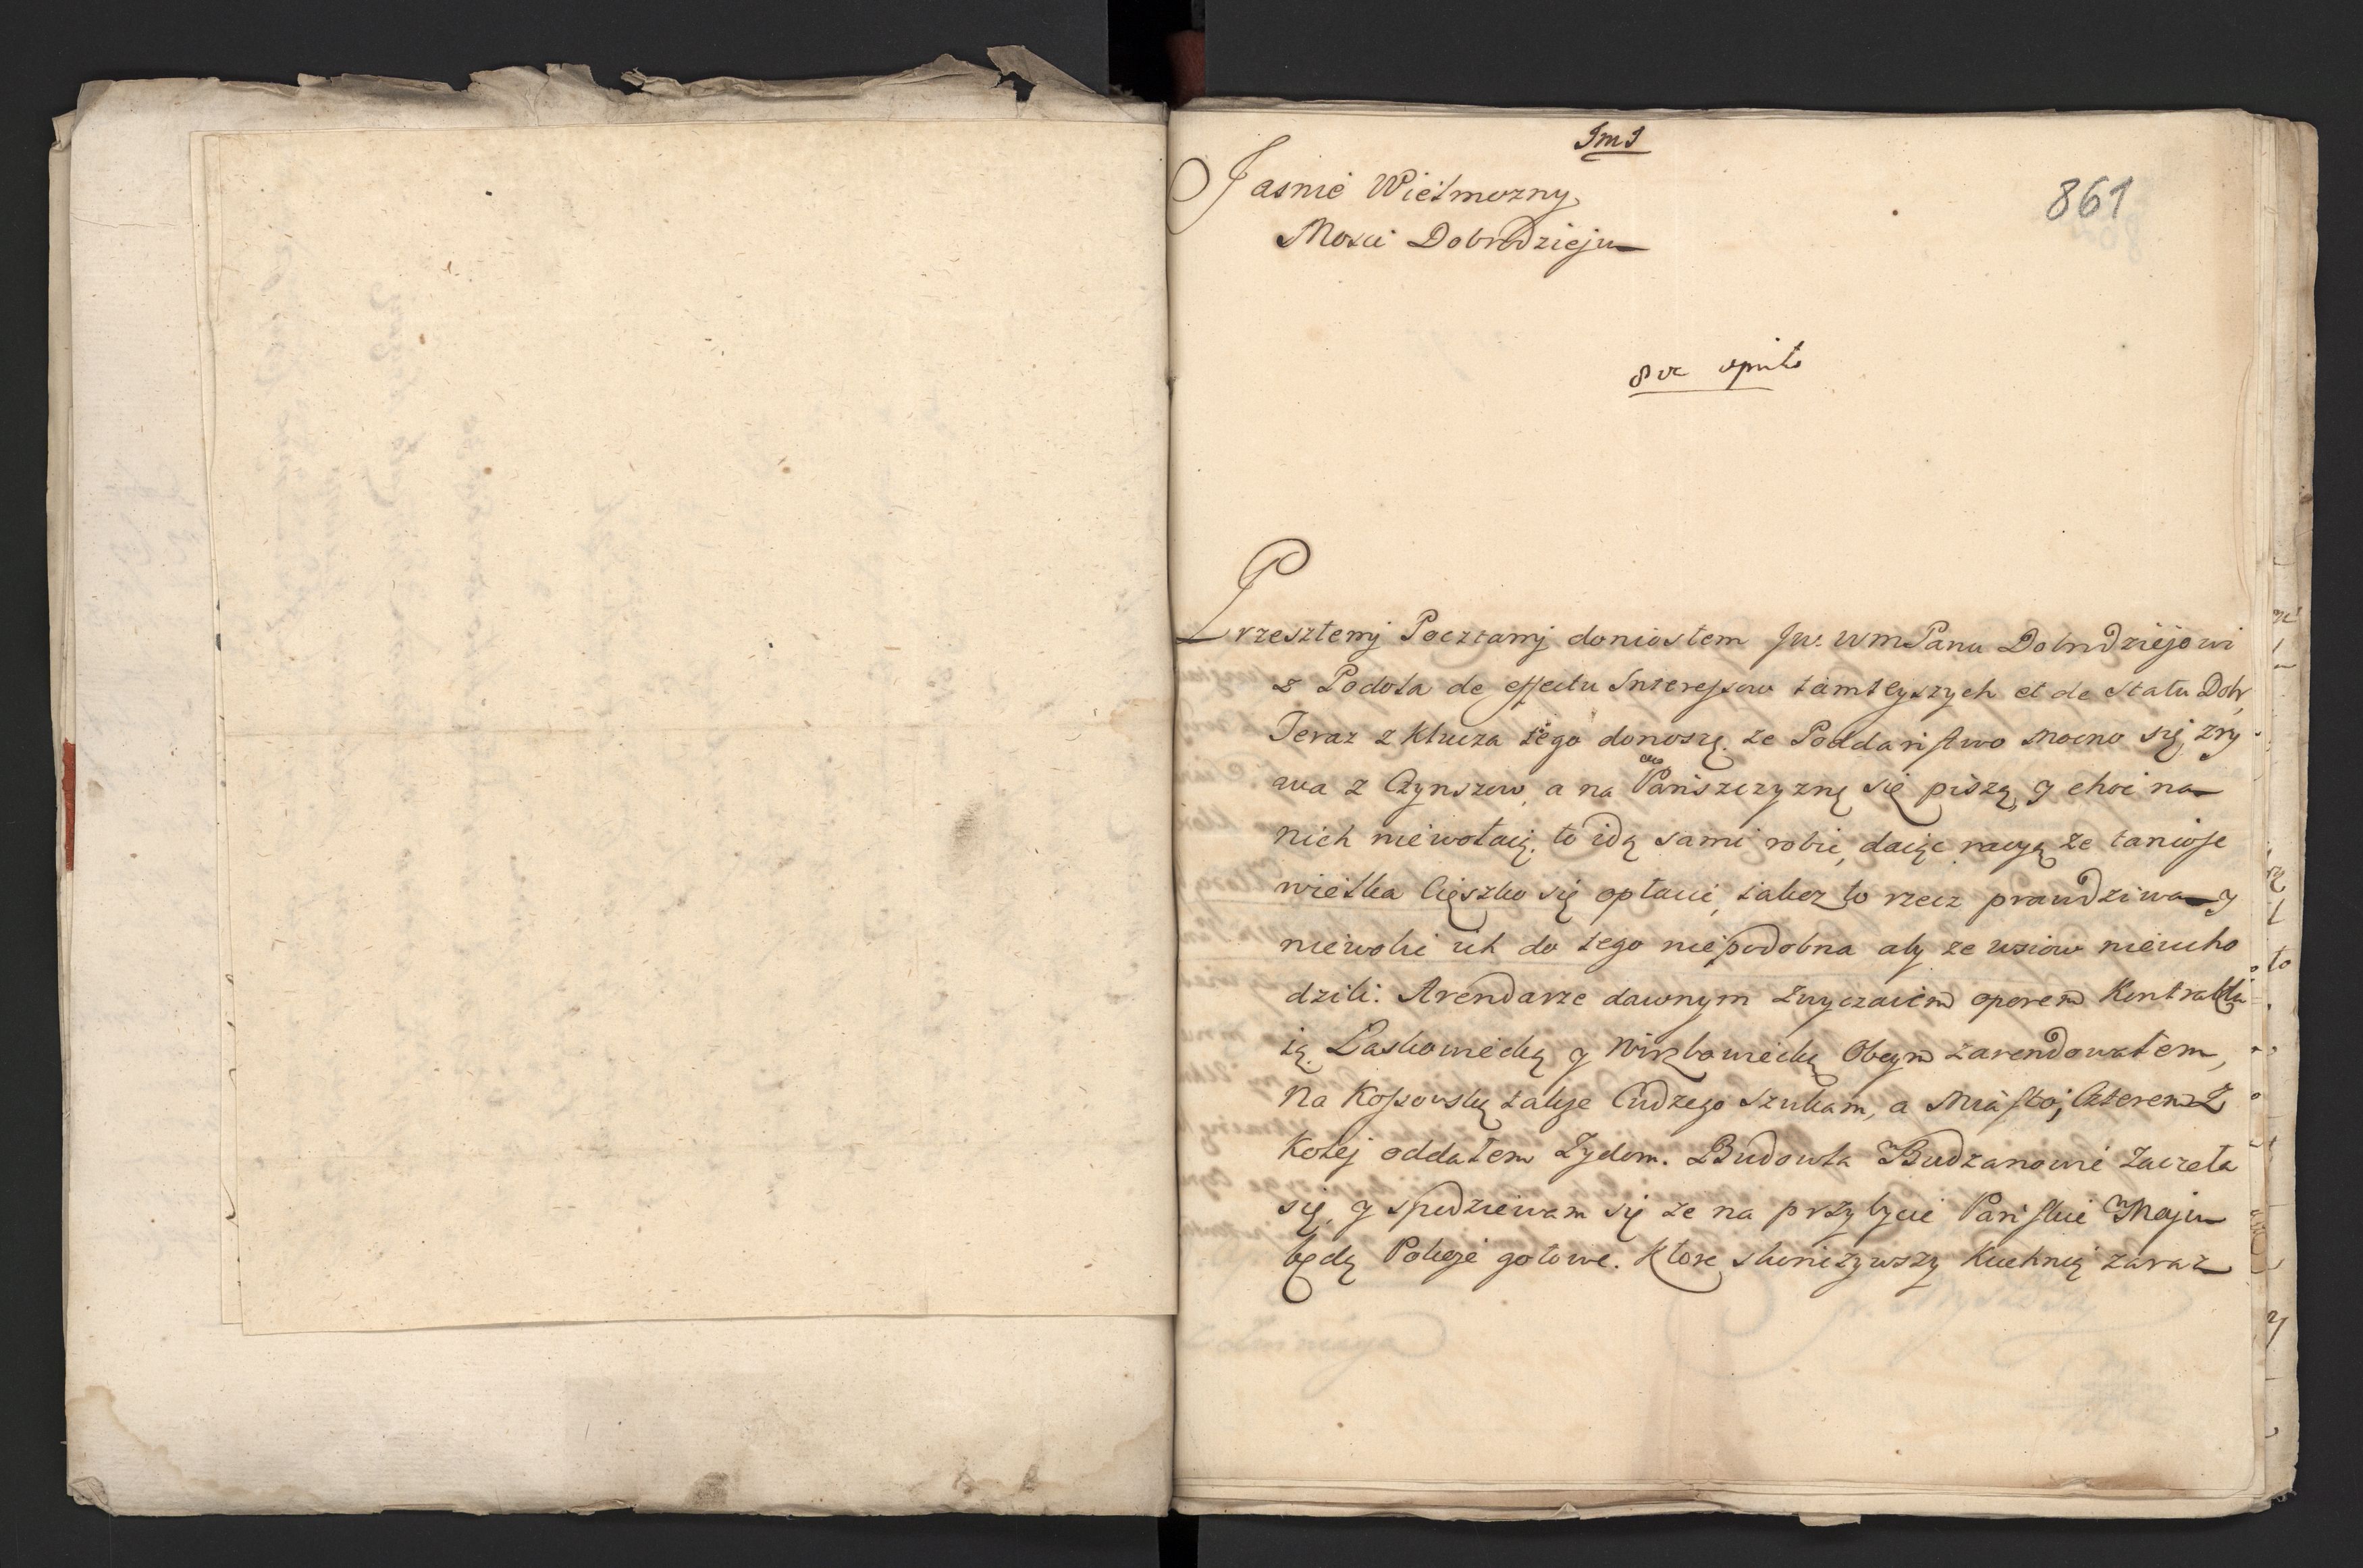 JmJ
861
Jasnie Wielmozny
Mosci Dobrodzieju
Przeszłemj Pocztamj doniosłem Jw. WmPanu Dobrodziejowi
z Podola de effectu Interessow tamteyszych et de statu Dobr,
Teraz z Klucza tego donoszę. ze Poddaństwo mocno się zry
wa z Czynszow, a na Pańszczyznę się piszą, y choc na
nich niewołaią, to idą sami robic, daiąc racyą ze
wielka Cięszko się opłacic, takoz to rzecz prawdziwa y
niewolic ich do tego niepodobna aby ze wsiow nieucho
dzili. Arendarze dawnym zwyczaiem oporem Kontraktu
ią. Laskowiecką y Wirzbowiecką Obcym zarendowałem,
Na Kossowską takze Cudzego szukam, a Miasto Czterem z
Koley oddałem Zydom. Budowla w Budzanowie zaczeła
się, y spodziewam się ze na przybycie Pańskie w Maju
będą Pokoje gotowe. Ktore skonczywszy Kuchnią zaraz